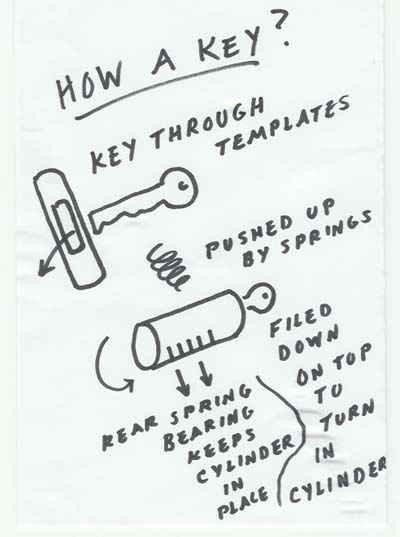 HOW A KEY?
KEY THROUGH
TEMPLATES
PUSHED UP
BY SPRINGS
FILED
DOWN
ON TOP
TO
TURN
IN
CYLINDER
REAR SPRING
BEARING
KEEPS
CYLINDER
IN
PLACE